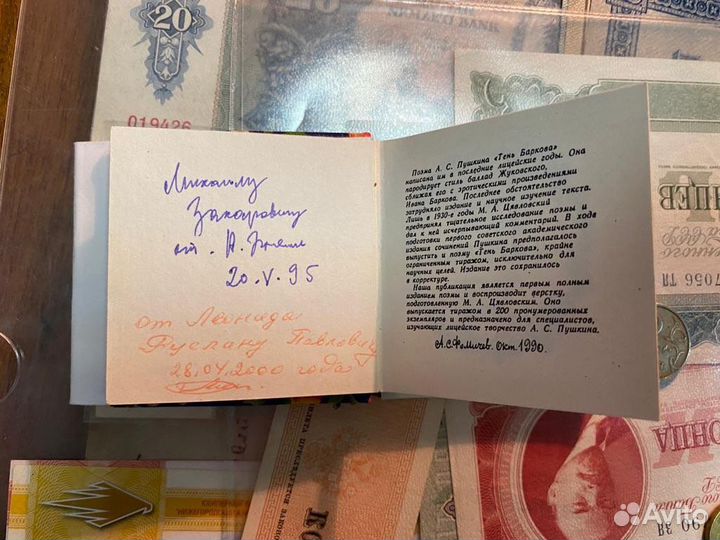 20
019426
NIMAKO BANK
Михаилу
Захаровичу
от
20.V.95
от Леонида
Руслану Павловичу
28.04.2000 года
Поэма А. С. Пушкина «Тень Баркова»
написана им в последние лицейские годы. Она
пародирует стиль баллад Жуковского,
сближая его с эротическими произведениями
Ивана Баркова. Последнее обстоятельство
затрудняло издание и научное изучение текста.
Лишь в 1930-е годы М. А. Цявловский
предпринял тщательное исследование поэмы и
дал к ней исчерпывающий комментарий. В ходе
подготовки первого советского академического
издания сочинений Пушкина предполагалось
выпустить и поэму «Тень Баркова», крайне
ограниченным тиражом, исключительно для
научных целей. Издание это сохранилось
в корректуре.
Наша публикация является первым полным
изданием поэмы и воспроизводит верстку,
подготовленную М. А. Цявловским. Оно
выпускается тиражом в 200 пронумерованных
экземпляров и предназначено для специалистов,
изучающих лицейское творчество А. С. Пушкина.
А.С.Фомичев. Окт. 1990.
НЦЕВ
7056 ТЛ
Avito